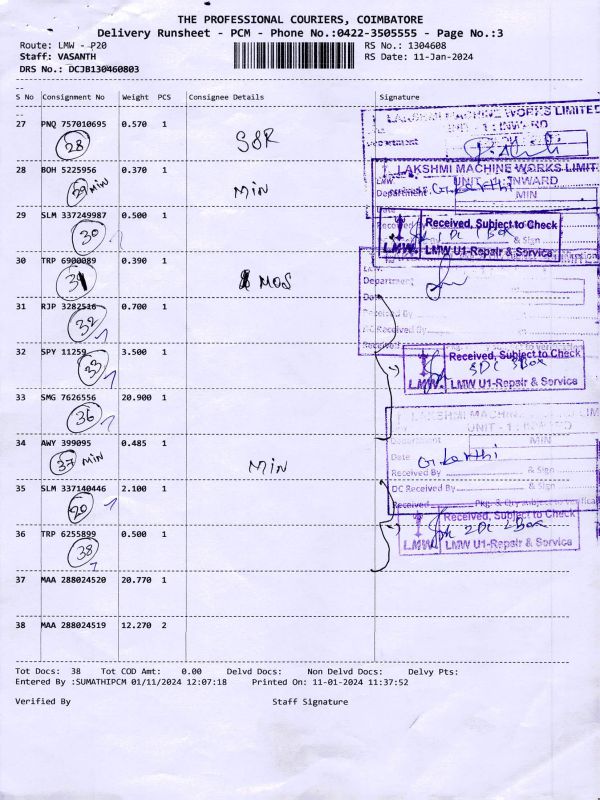 THE PROFESSIONAL COURIERS, COIMBATORE
Delivery Runsheet - PCM - Phone No.:0422-3505555 - Page No.:3
Route: LMW - P20 RS No.: 1304608
Staff: VASANTH RS Date: 11-Jan-2024
DRS No.: DCJB130460803
S No Consignment No Weight PCS Consignee Details Signature
27 PNQ 757010695 0.570 1
28 SOR
LAKSHMI MACHINE WORKS LIMITED
UNIT - 1 : INWARD
28 BOH 5225956 0.370 1
29 MIN MIN
LAKSHMI MACHINE WORKS LIMIT
UNIT - 1 : INWARD
Department MIN
29 SLM 337249987 0.500 1
30
Received, Subject to Check
1 DC 1 Box
L.M.W. LMW U1-Repair & Service
30 TRP 6900089 0.390 1
31 MOS
Department
Date
31 RJP 3282516 0.700 1
32
Received By
DC Received By
32 SPY 11259 3.500 1
33
Received, Subject to Check
3DC 3Box
L.M.W. LMW U1-Repair & Service
33 SMG 7626556 20.900 1
36
LAKSHMI MACHINE WORKS LIM
UNIT - 1 : INWARD
34 AWY 399095 0.485 1
37 MIN MIN
Department MIN
Date
Received By & Sign
35 SLM 337140446 2.100 1
20
DC Received By & Sign
Received Pkg. & Qty subject to verifica
36 TRP 6255899 0.500 1
38
Received, Subject to Check
2DC 2Box
L.M.W. LMW U1-Repair & Service
37 MAA 288024520 20.770 1
38 MAA 288024519 12.270 2
Tot Docs: 38 Tot COD Amt: 0.00 Delvd Docs: Non Delvd Docs: Delvy Pts:
Entered By :SUMATHIPCM 01/11/2024 12:07:18 Printed On: 11-01-2024 11:37:52
Verified By Staff Signature